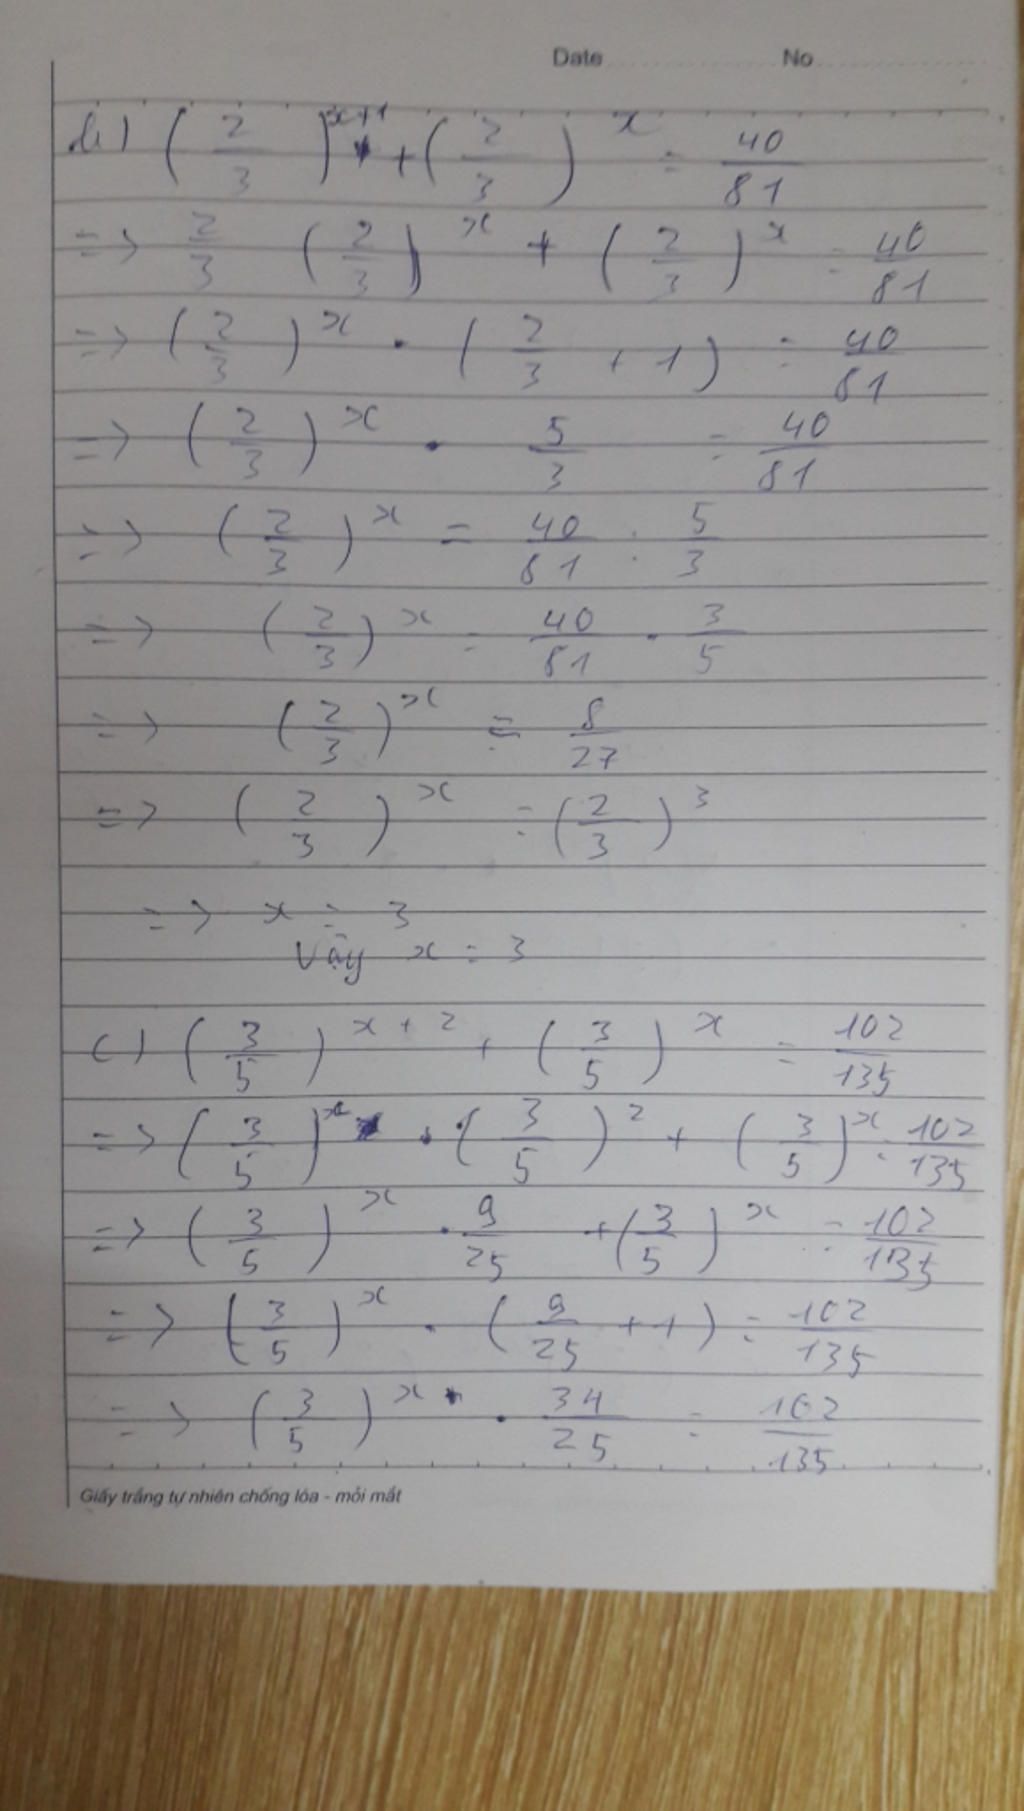 Date No
b) (2/3)^{x+1} + (2/3)^x = 40/81
=> 2/3 (2/3)^x + (2/3)^x = 40/81
=> (2/3)^x . (2/3 + 1) = 40/81
=> (2/3)^x . 5/3 = 40/81
=> (2/3)^x = 40/81 : 5/3
=> (2/3)^x = 40/81 . 3/5
=> (2/3)^x = 8/27
=> (2/3)^x = (2/3)^3
=> x = 3
Vậy x = 3
c) (3/5)^{x+2} + (3/5)^x = 102/135
=> (3/5)^x . (3/5)^2 + (3/5)^x = 102/135
=> (3/5)^x . 9/25 + (3/5)^x = 102/135
=> (3/5)^x . (9/25 + 1) = 102/135
=> (3/5)^x . 34/25 = 102/135
Giấy trắng tự nhiên chống lóa - mỏi mắt